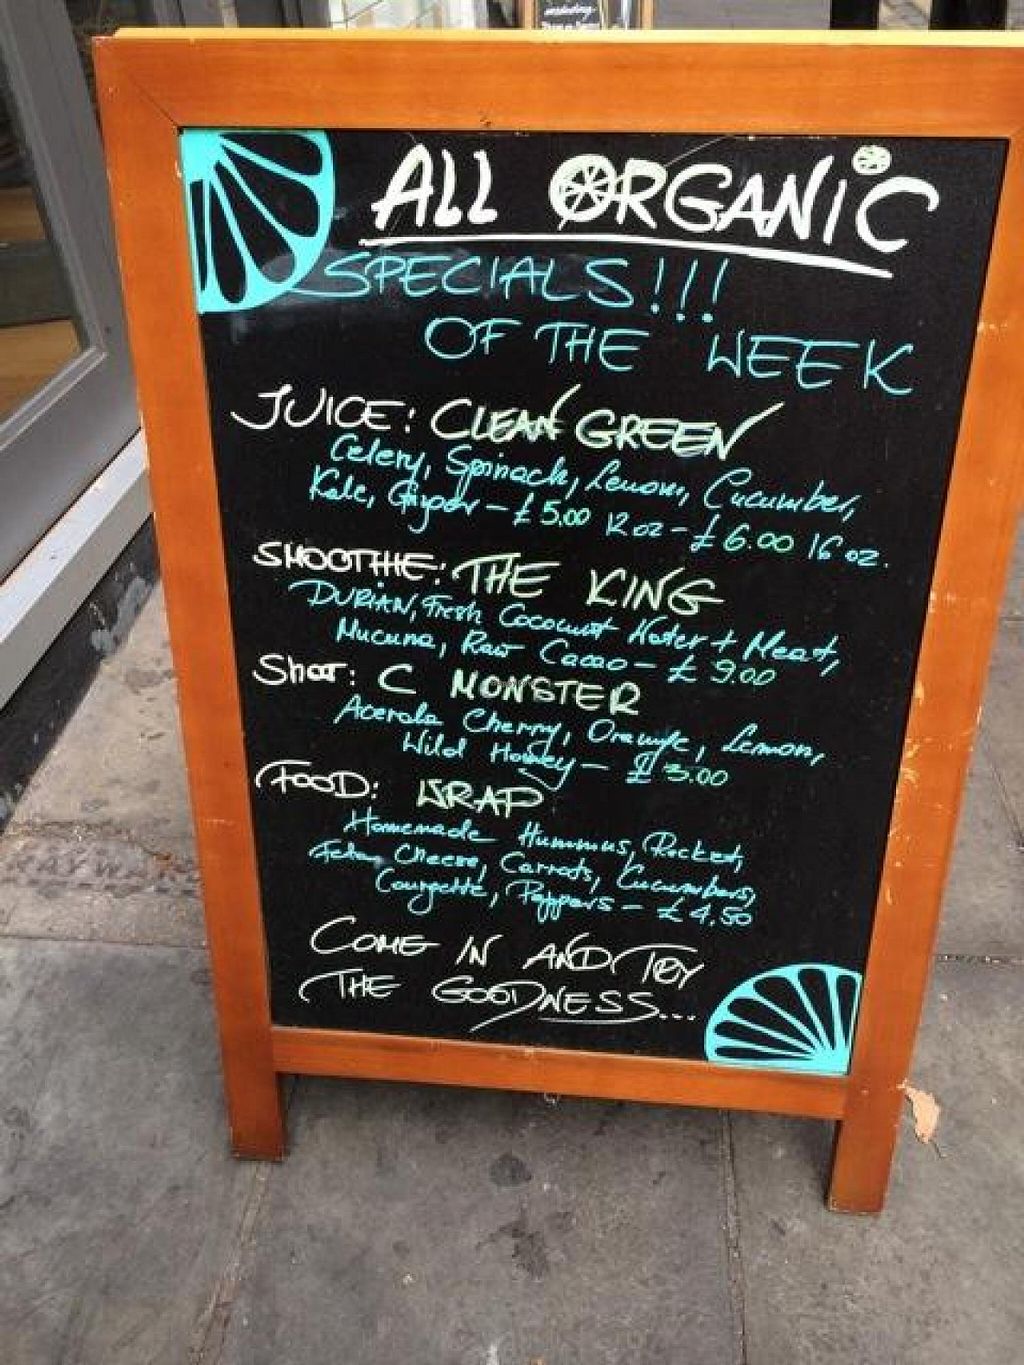 ALL ORGANIC
SPECIALS!!!
OF THE WEEK
JUICE: CLEAN GREEN
Celery, Spinach, Lemon, Cucumber,
Kale, Ginger - £5.00 12 oz - £6.00 16 oz.
SMOOTHIE: THE KING
DURIAN, Fresh Coconut Water + Meat,
Mucuna, Raw Cacao - £9.00
Shot: C MONSTER
Acerola Cherry, Orange, Lemon,
Wild Honey - £3.00
FOOD: WRAP
Homemade Hummus, Rocket,
Feta Cheese, Carrots, Cucumbers,
Courgette, Peppers - £4.50
COME IN AND TRY
THE GOODNESS...